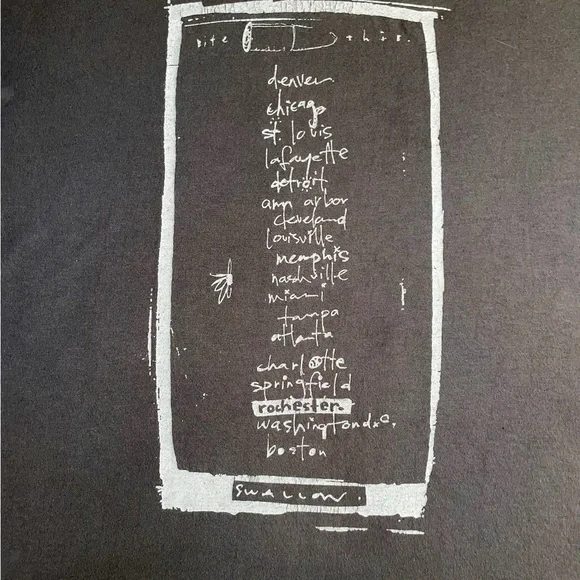 bite this.
denver
chicago
st. louis
lafayette
detroit
ann arbor
cleveland
louisville
memphis
nashville
miami
tampa
atlanta
charlotte
springfield
rochester
washington d.c.
boston
SWALLOW.